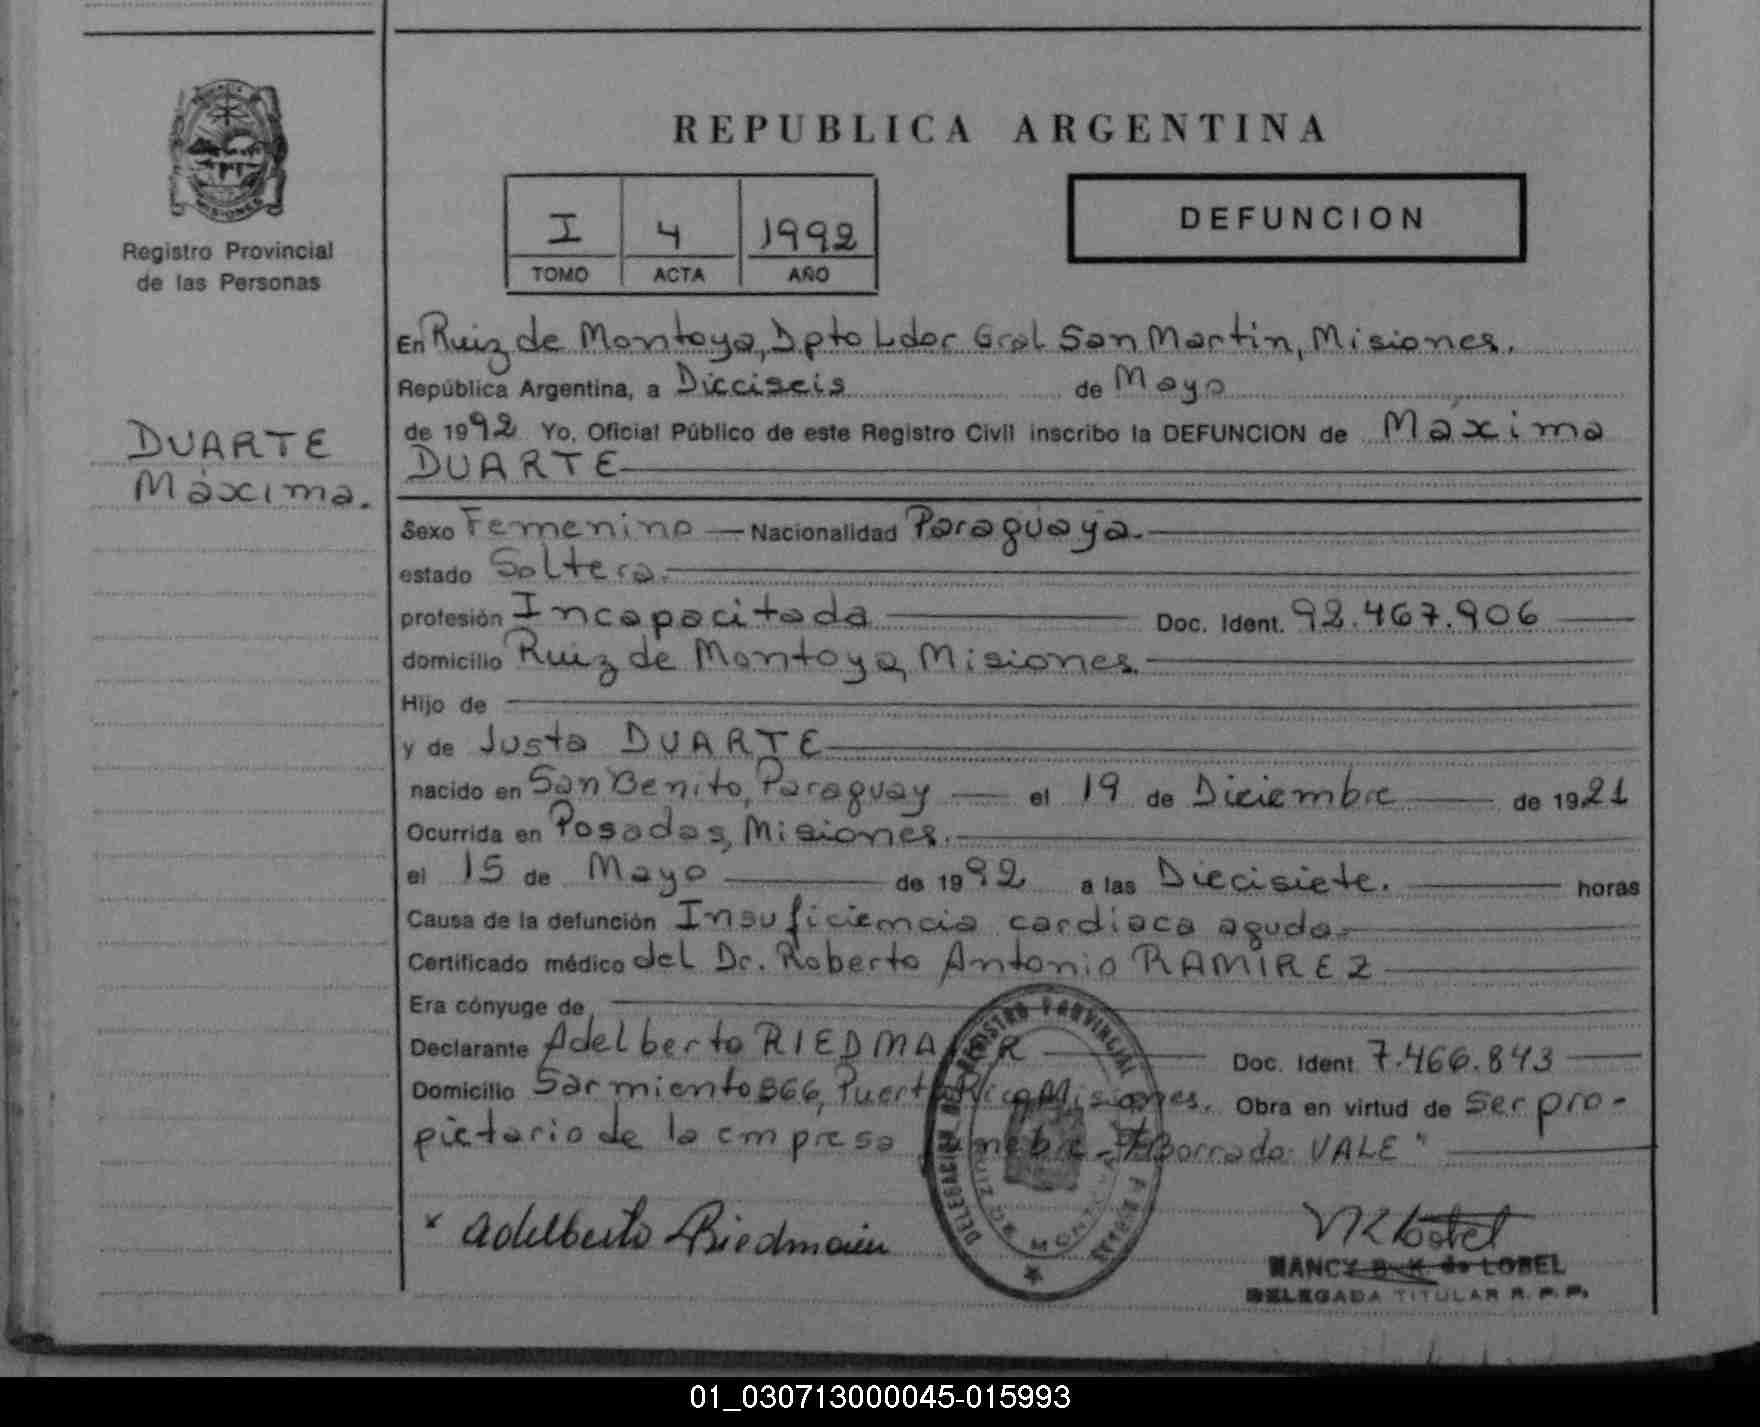 REPUBLICA ARGENTINA
MISIONES
Registro Provincial
de las Personas
I 4 1992
TOMO ACTA AÑO
DEFUNCION
DUARTE
Máxima.
En Ruiz de Montoya, Dpto Ldor Gral San Martin, Misiones.
República Argentina, a Dieciseis de Mayo
de 1992 Yo, Oficial Público de este Registro Civil inscribo la DEFUNCION de Máxima
DUARTE
Sexo Femenino Nacionalidad Paraguaya.
estado Soltera.
profesión Incapacitada Doc. Ident. 92.467.906
domicilio Ruiz de Montoya, Misiones.
Hijo de
y de Justa DUARTE
nacido en San Benito, Paraguay el 19 de Diciembre de 1921
Ocurrida en Posadas, Misiones.
el 15 de Mayo de 1992 a las Diecisiete. horas
Causa de la defunción Insuficiencia cardiaca aguda.
Certificado médico del Dr. Roberto Antonio RAMIREZ
Era cónyuge de
Declarante Adelberto RIEDMAIER Doc. Ident. 7.466.843
Domicilio Sarmiento 866, Puerto Rico, Misiones. Obra en virtud de Ser pro-
pietario de la empresa funebre. Borrado: VALE"
DELEGACION DEL REGISTRO PROVINCIAL
RUIZ DE MONTOYA
x Adelberto Riedmaier
NANCY B. K. de LOBEL
DELEGADA TITULAR R. P. P.
01_030713000045-015993